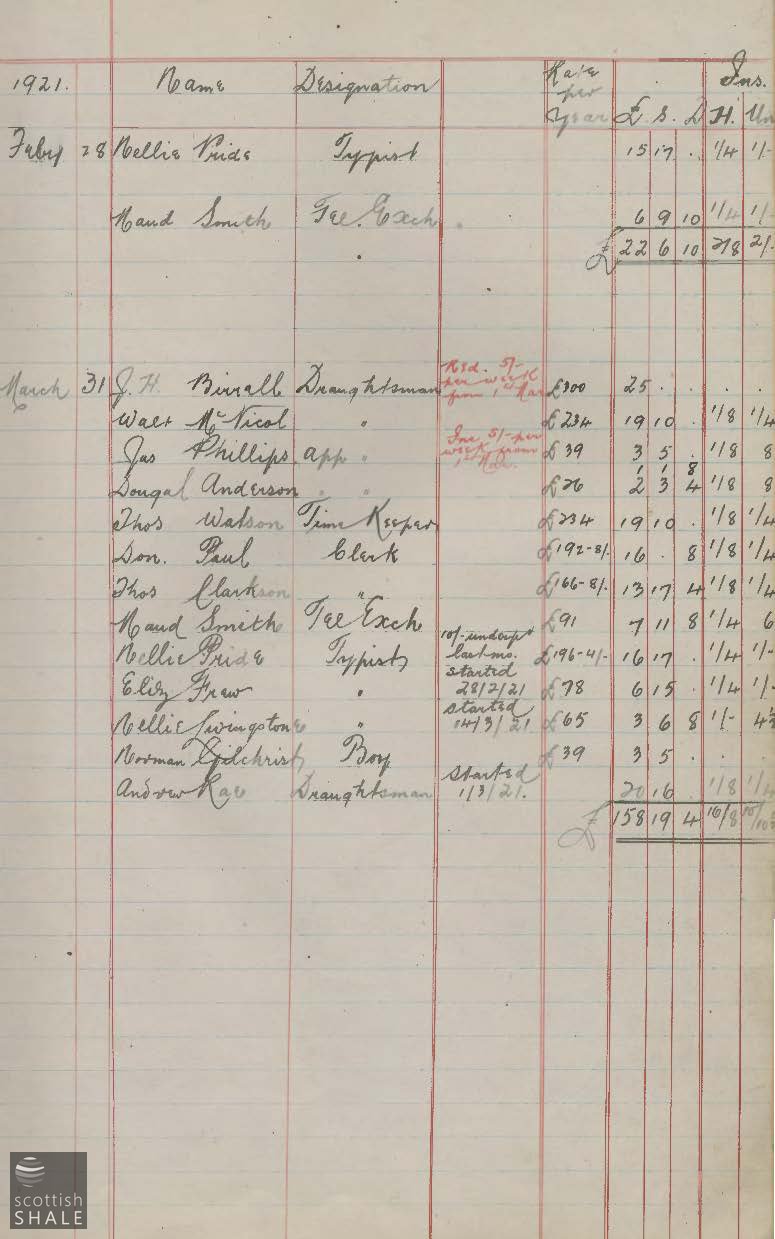 1921. Name Designation Rate per Year £ S. D Ins. H. Un
Feby 28 Nellie Pride Typist 15 17 . 1/4 1/-
Maud Smith Tel. Exch 6 9 10 1/4 1/-
£ 22 6 10 2/8 2/-
March 31 J. H. Birrall Draughtsman Red. 5/- per week from 1st Mar £300 25 . . . .
Walt McNicol " £234 19 10 . 1/8 1/4
Jas Phillips app " Inc 5/- per week from 1st Mar. £39 3 5 . 1/8 8
1 1 8
Dougal Anderson " " £26 2 3 4 1/8 8
Thos Watson Time Keeper £234 19 10 . 1/8 1/4
Don. Paul Clerk £192-8/- 16 . 8 1/8 1/4
Thos Clarkson " £166-8/- 13 17 4 1/8 1/4
Maud Smith Tel Exch £91 7 11 8 1/4 6
Nellie Pride Typist 10/- underpt last mo. £196-4/- 16 17 . 1/4 1/-
Eliz Frew " started 28/2/21 £78 6 15 . 1/4 1/-
Nellie Livingstone " started 14/3/21 £65 3 6 8 1/- 4½
Norman Gilchrist Boy £39 3 5 . . .
Andrew Rae Draughtsman started 1/3/21. 20 16 . 1/8 1/4
£ 158 19 4 16/8 10/10½
scottish
SHALE